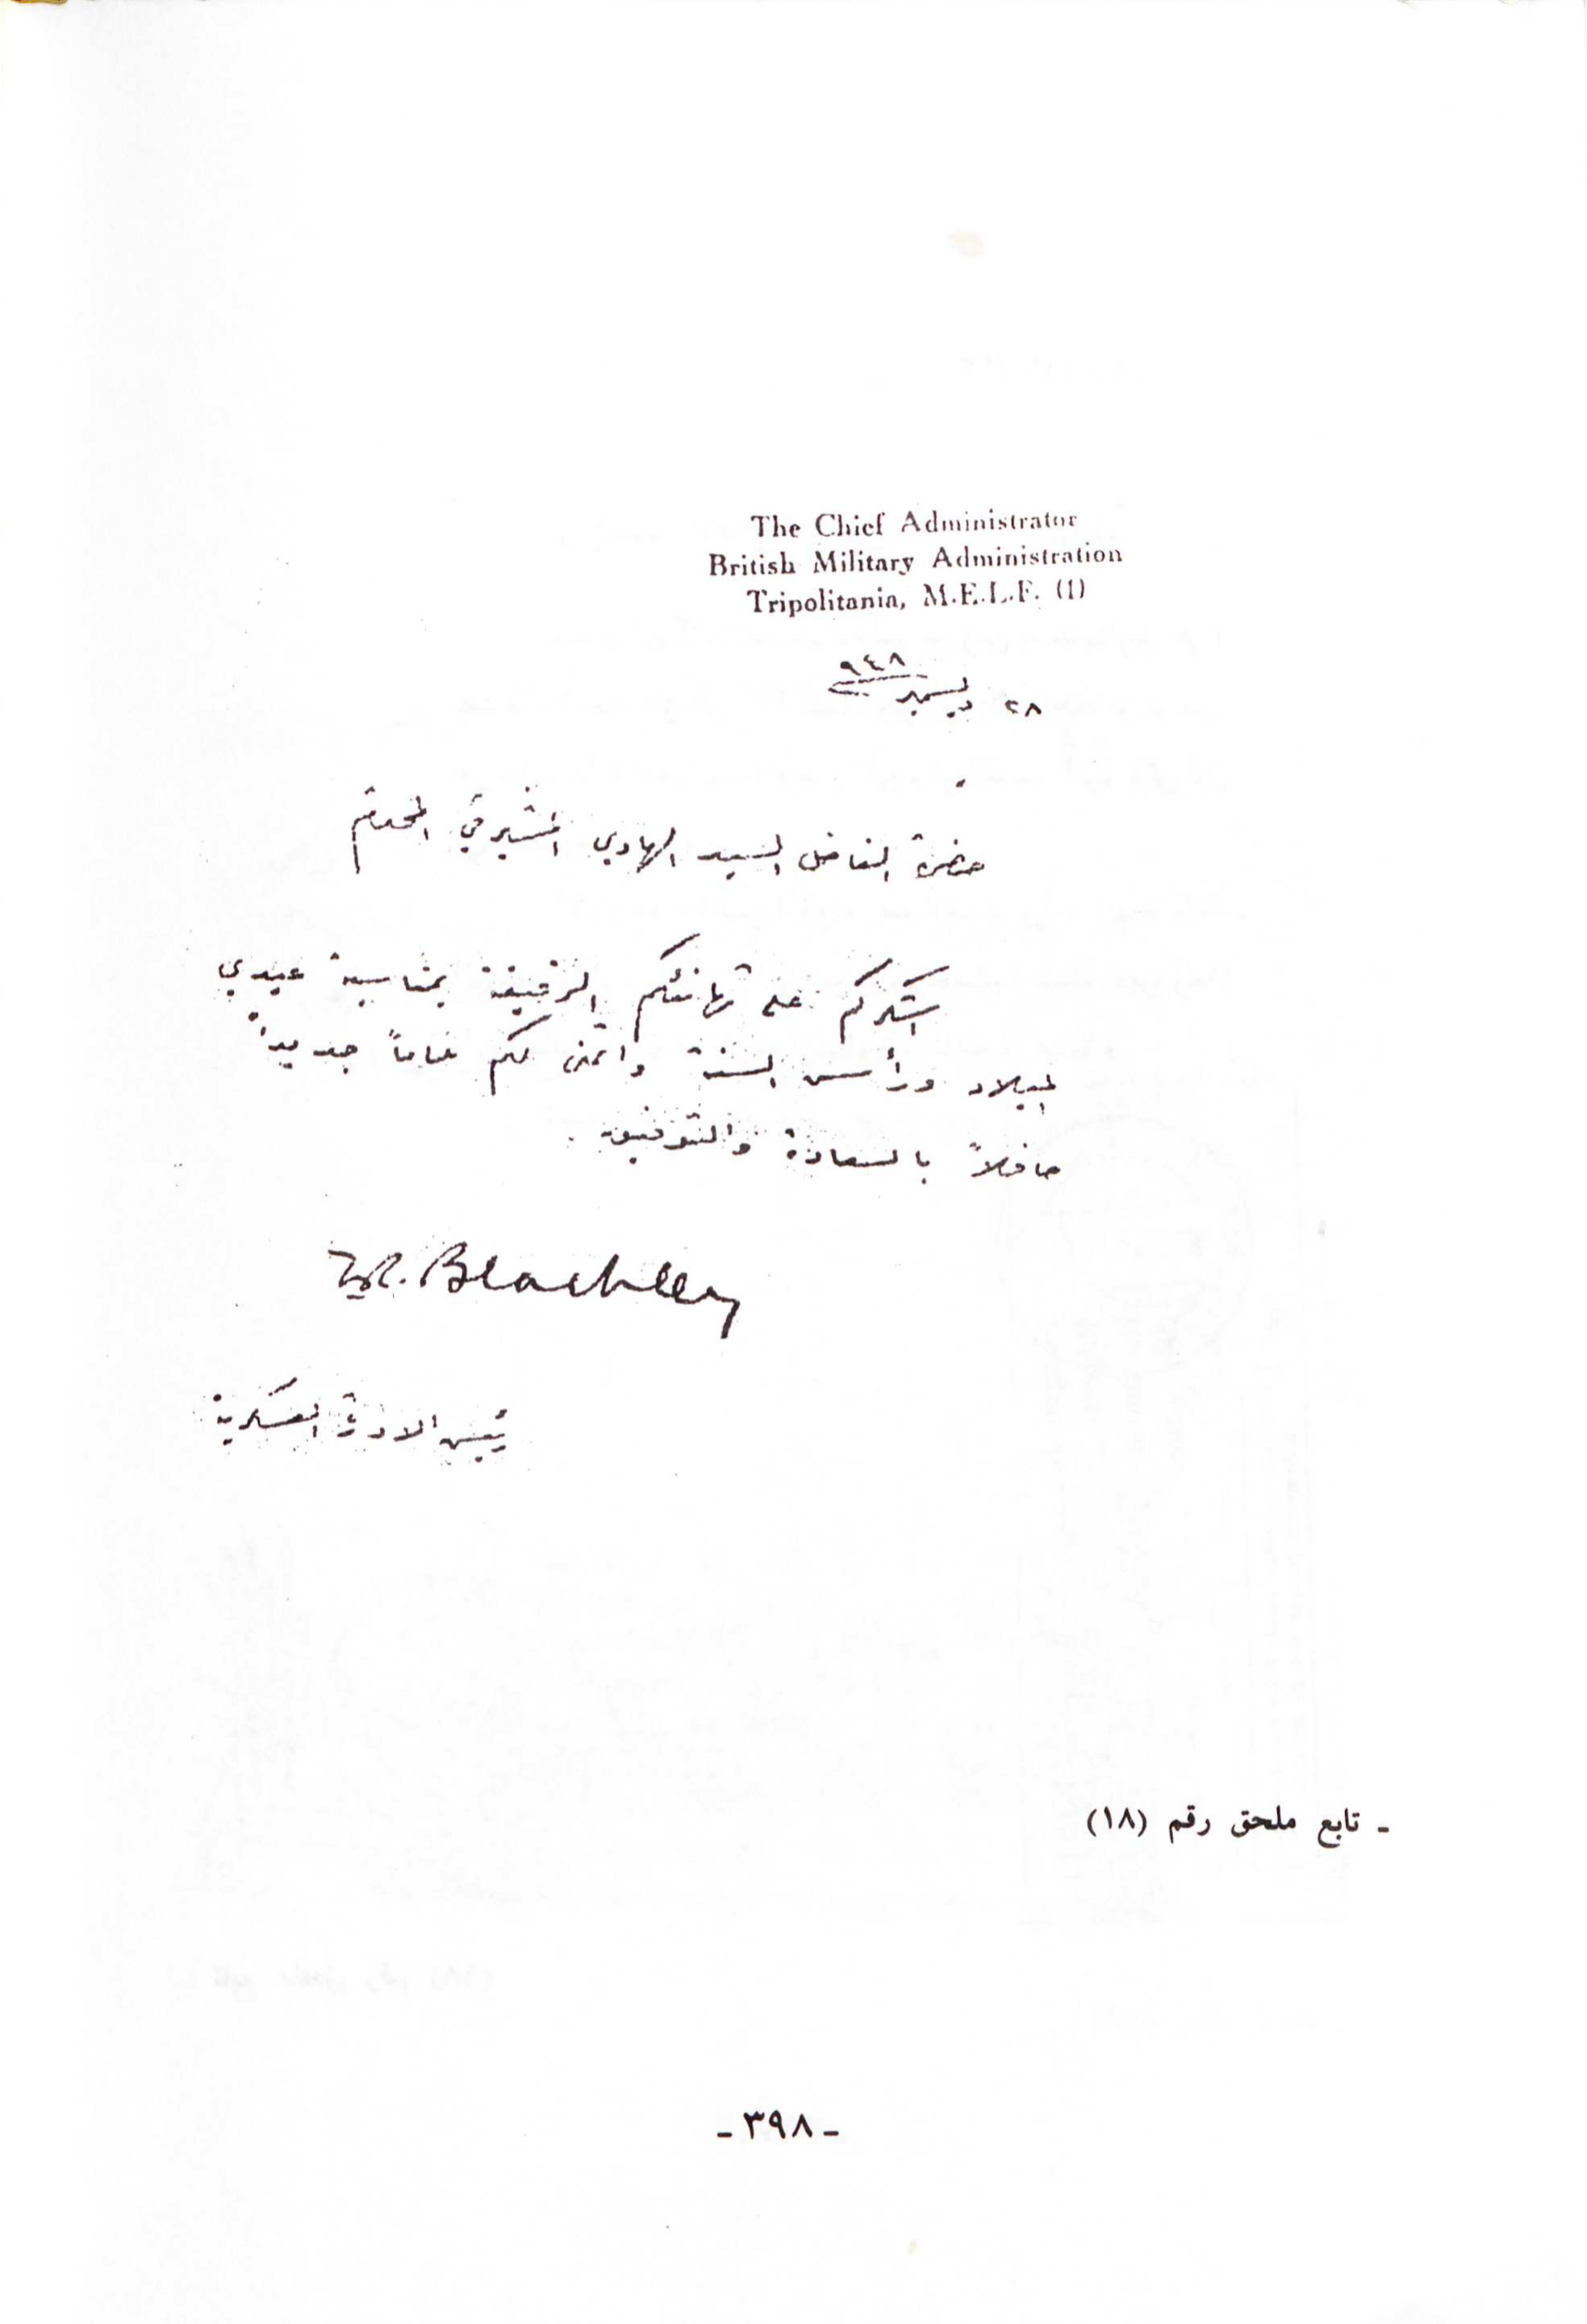 The Chief Administrator
British Military Administration
Tripolitania, M.E.L.F. (1)
٢٨ ديسمبر ٩٤٨
حضرة الفاضل السيد الهادي المشيرقي المحترم
اشكركم على تهانئكم الرقيقة بمناسبة عيدي
الميلاد ورأس السنة واتمنى لكم عاماً جديداً
حافلاً بالسعادة والتوفيق .
T.R. Blackley
رئيس الادارة العسكرية
- تابع ملحق رقم (١٨)
- ٣٩٨ -